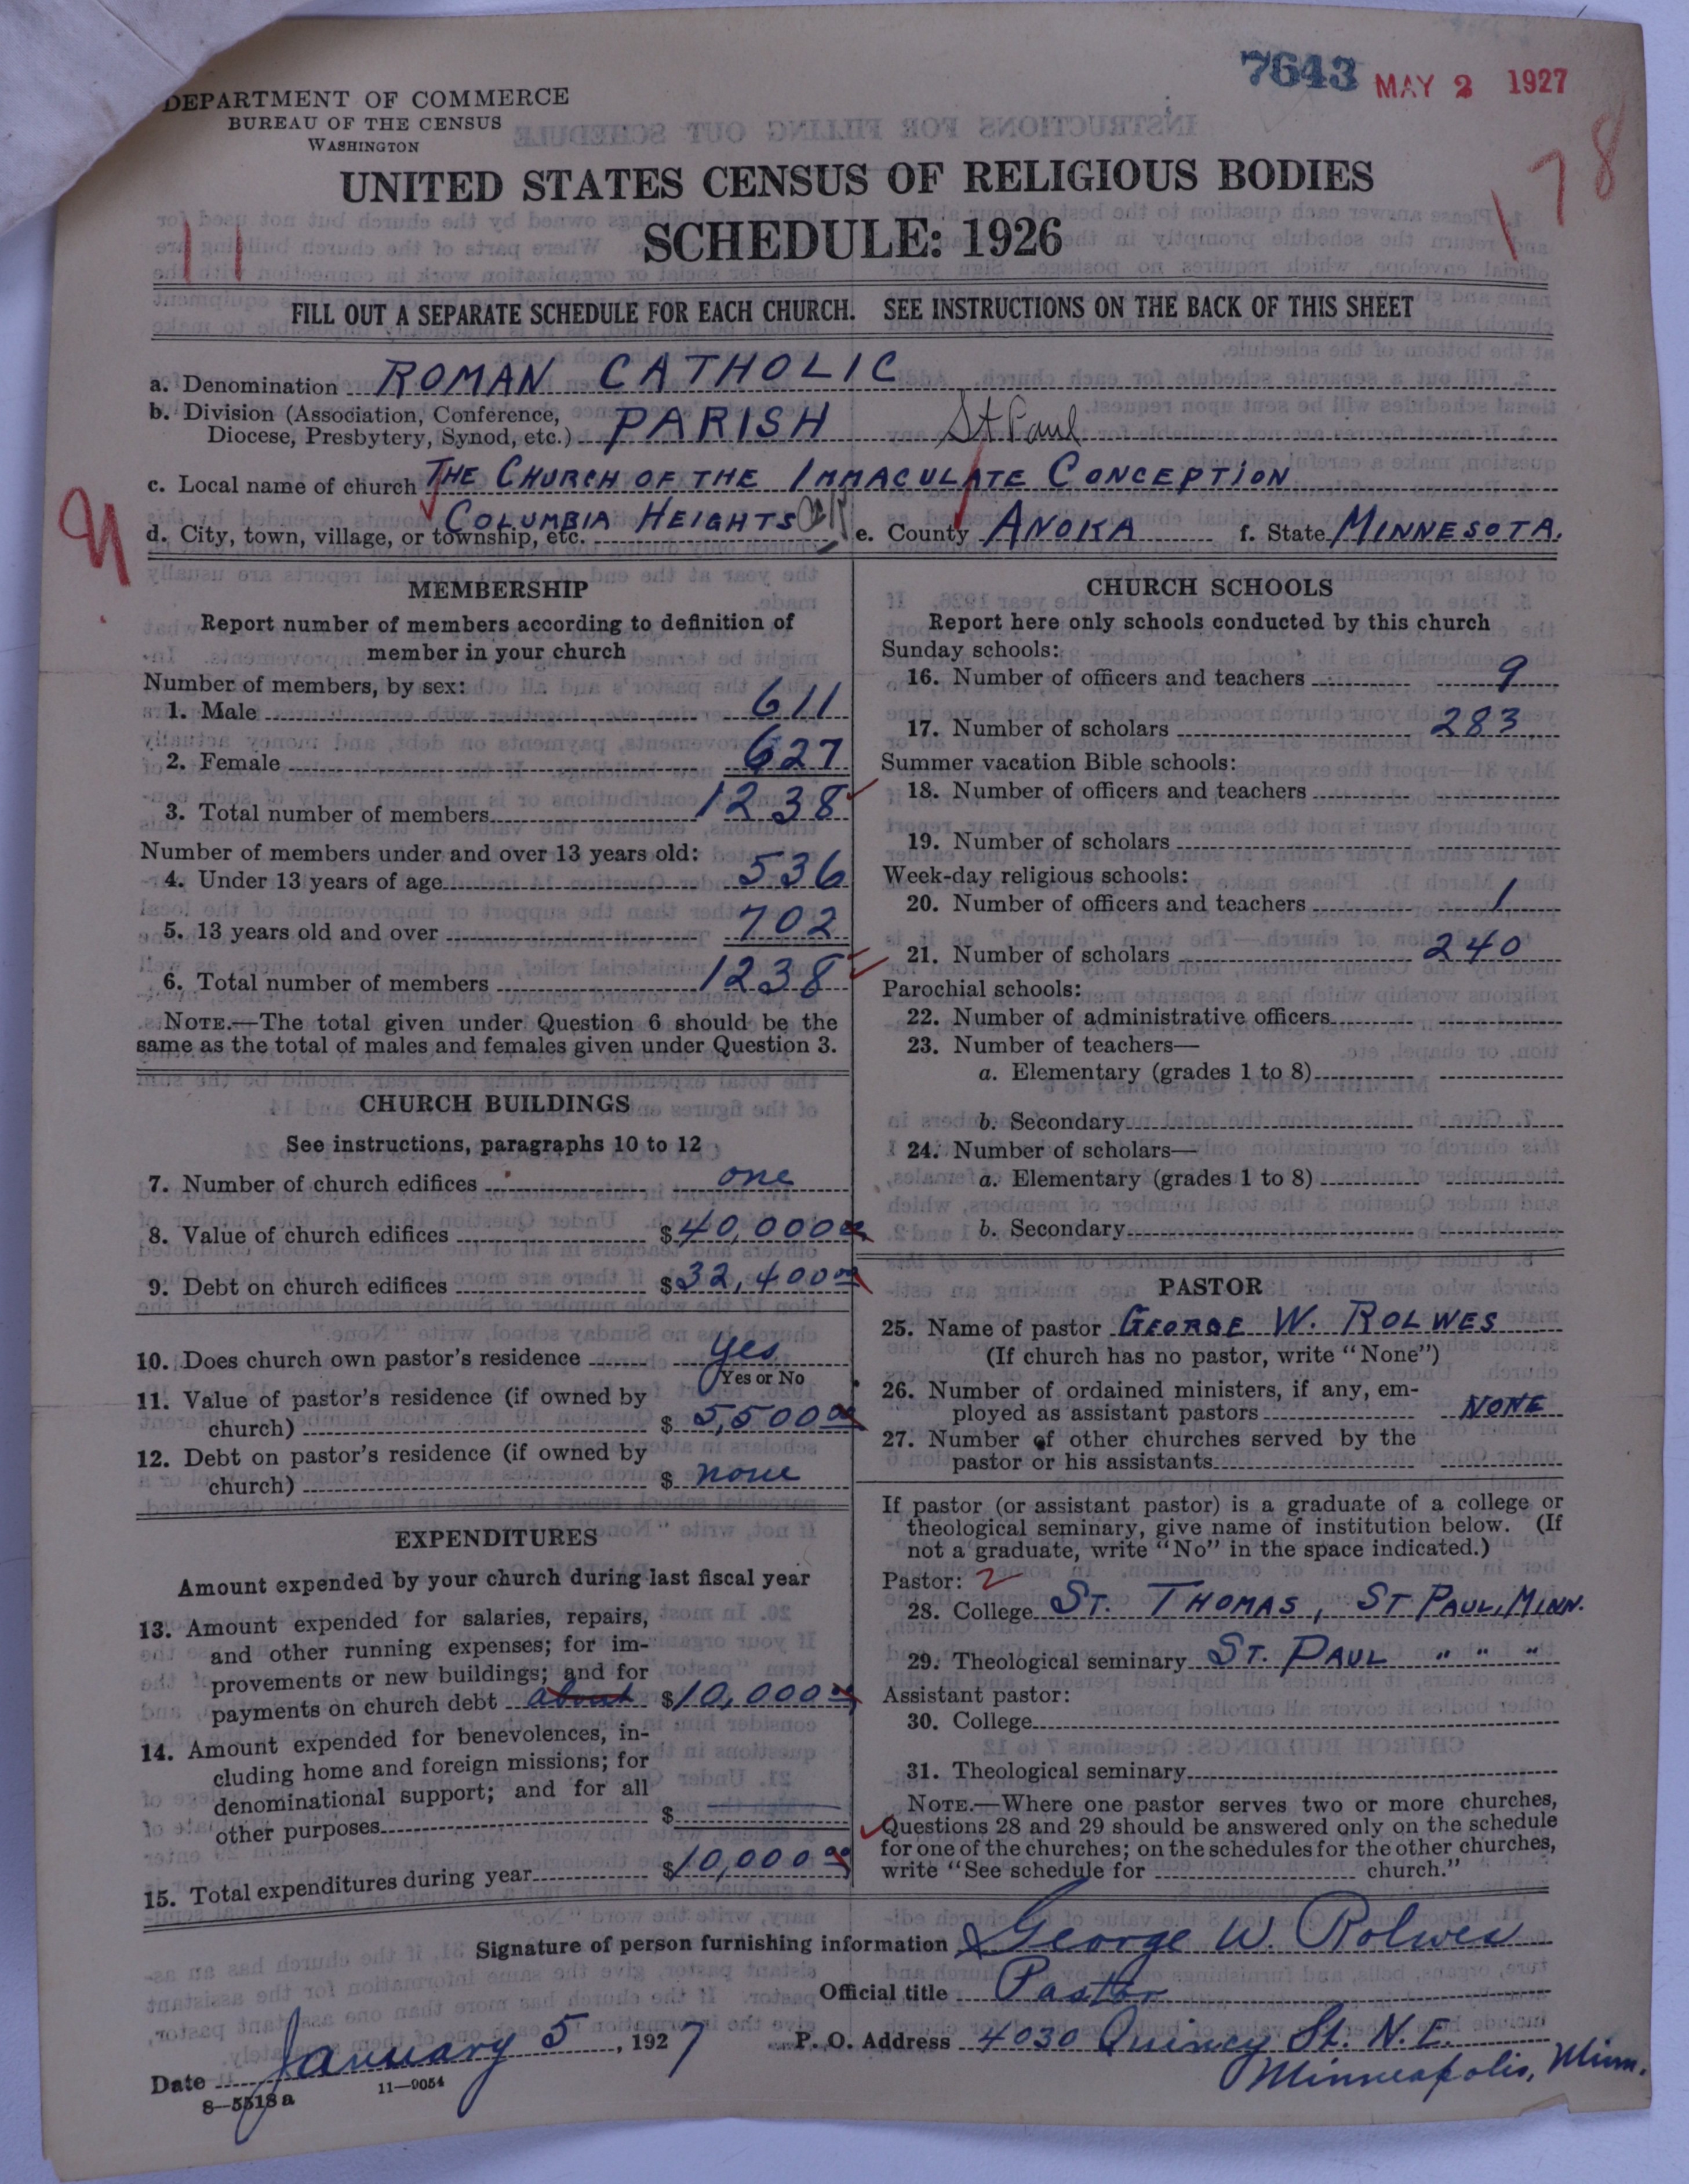 7643 MAY 2 1927
DEPARTMENT OF COMMERCE
BUREAU OF THE CENSUS
WASHINGTON
178
UNITED STATES CENSUS OF RELIGIOUS BODIES
SCHEDULE: 1926
11
FILL OUT A SEPARATE SCHEDULE FOR EACH CHURCH. SEE INSTRUCTIONS ON THE BACK OF THIS SHEET
a. Denomination ROMAN CATHOLIC
b. Division (Association, Conference,
Diocese, Presbytery, Synod, etc.) PARISH St Paul
c. Local name of church THE CHURCH OF THE IMMACULATE CONCEPTION
d. City, town, village, or township, etc. COLUMBIA HEIGHTS e. County ANOKA f. State MINNESOTA.
MEMBERSHIP
Report number of members according to definition of
member in your church
Number of members, by sex:
1. Male 611
2. Female 627
3. Total number of members 1238
Number of members under and over 13 years old:
4. Under 13 years of age 536
5. 13 years old and over 702
6. Total number of members 1238
NOTE.—The total given under Question 6 should be the
same as the total of males and females given under Question 3.
CHURCH BUILDINGS
See instructions, paragraphs 10 to 12
7. Number of church edifices one
8. Value of church edifices $40,000 00
9. Debt on church edifices $32,400 00
10. Does church own pastor's residence yes
Yes or No
11. Value of pastor's residence (if owned by
church) $5,500 00
12. Debt on pastor's residence (if owned by
church) $ none
EXPENDITURES
Amount expended by your church during last fiscal year
13. Amount expended for salaries, repairs,
and other running expenses; for im-
provements or new buildings; and for
payments on church debt about $10,000 00
14. Amount expended for benevolences, in-
cluding home and foreign missions; for
denominational support; and for all
other purposes $
15. Total expenditures during year $10,000 00
CHURCH SCHOOLS
Report here only schools conducted by this church
Sunday schools:
16. Number of officers and teachers 9
17. Number of scholars 283
Summer vacation Bible schools:
18. Number of officers and teachers
19. Number of scholars
Week-day religious schools:
20. Number of officers and teachers 1
21. Number of scholars 240
Parochial schools:
22. Number of administrative officers
23. Number of teachers—
a. Elementary (grades 1 to 8)
b. Secondary
24. Number of scholars—
a. Elementary (grades 1 to 8)
b. Secondary
PASTOR
25. Name of pastor GEORGE W. ROLWES
(If church has no pastor, write "None")
26. Number of ordained ministers, if any, em-
ployed as assistant pastors NONE
27. Number of other churches served by the
pastor or his assistants
If pastor (or assistant pastor) is a graduate of a college or
theological seminary, give name of institution below. (If
not a graduate, write "No" in the space indicated.)
Pastor: 2
28. College ST. THOMAS, ST PAUL, MINN.
29. Theological seminary ST. PAUL " " "
Assistant pastor:
30. College
31. Theological seminary
NOTE.—Where one pastor serves two or more churches,
Questions 28 and 29 should be answered only on the schedule
for one of the churches; on the schedules for the other churches,
write "See schedule for church."
Signature of person furnishing information George W. Rolwes
Official title Pastor
Date January 5, 1927 P. O. Address 4030 Quincy St. N. E.
Minneapolis, Minn.
8—5518a 11—9054